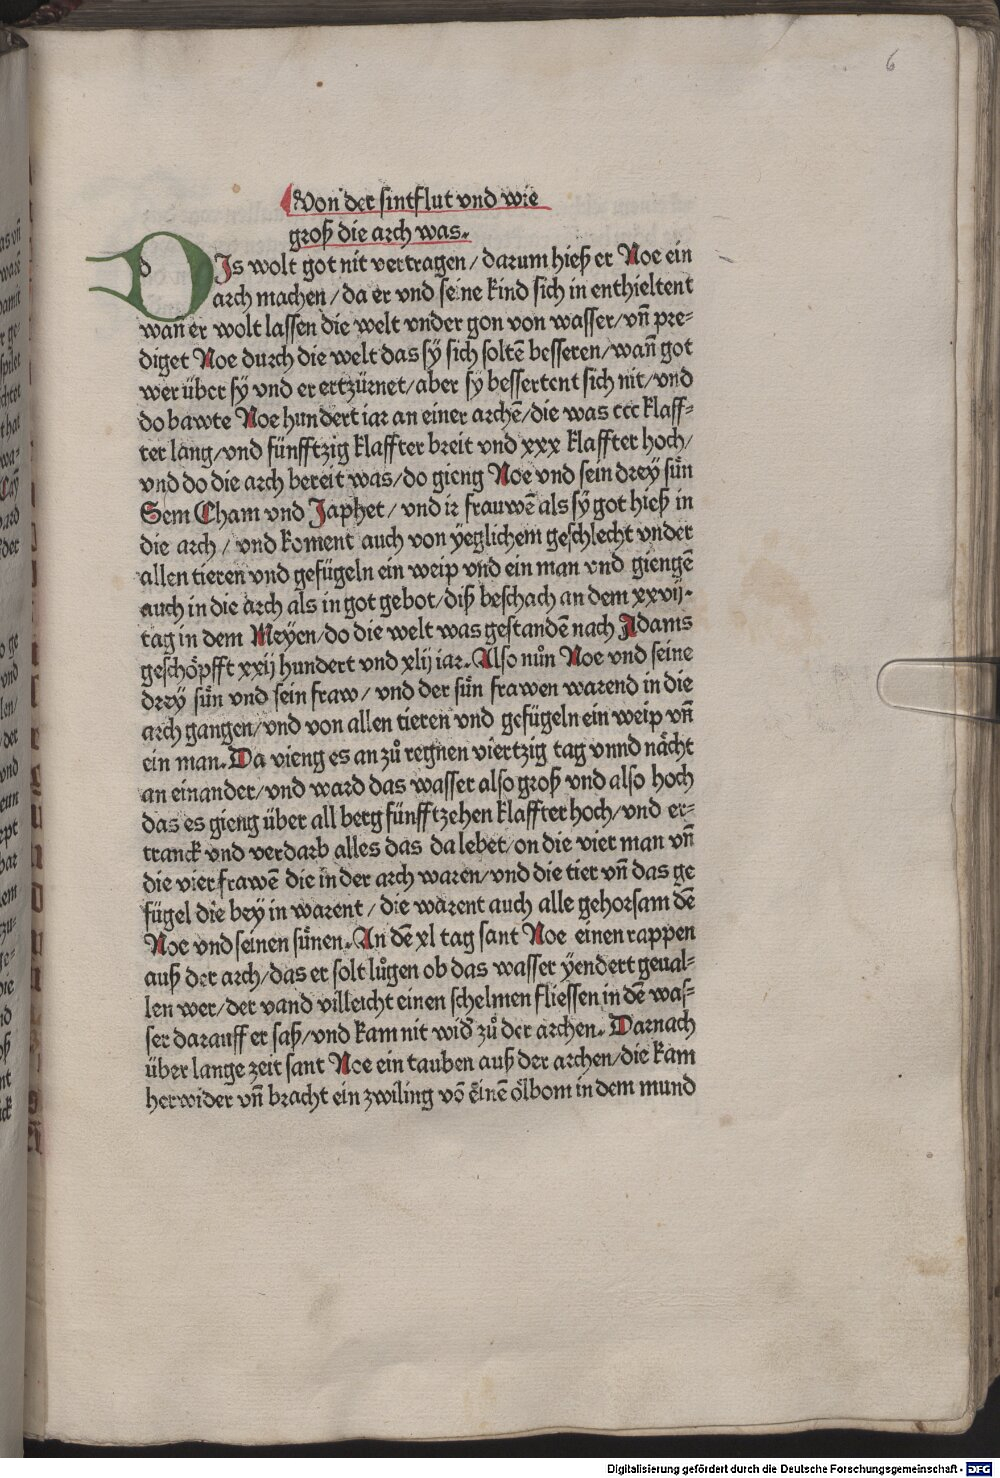 6
Von der sintflut vnd wie
groß die arch was.
DIs wolt got nit vertragen / darum hieß er Noe ein
arch machen / da er vnd seine kind sich in enthieltent
wan er wolt lassen die welt vnder gon von wasser / vn̄ pre⸗
diget Noe durch die welt das sÿ sich soltē besseren / wan̄ got
wer über sÿ vnd er ertzürnet / aber sy bessertent sich nit / vnd
do bawte Noe hundert iar an einer archē / die was ccc klaff⸗
ter lang / vnd fünfftzig klaffter breit vnd xxx klaffter hoch /
vnd do die arch bereit was / do gieng Noe vnd sein dreÿ sün
Sem Cham vnd Japhet / vnd ir frauwē als sÿ got hieß in
die arch / vnd koment auch von ÿeglichem geschlecht vnder
allen tieren vnd gefügeln ein weip vnd ein man vnd giengē
auch in die arch als in got gebot / diß beschach an dem xxvij.
tag in dem Meÿen / do die welt was gestandē nach Adams
geschöpfft xxij hundert vnd xlij iar. Also nůn Noe vnd seine
dreÿ sün vnd sein fraw / vnd der sün frawen warend in die
arch gangen / vnd von allen tieren vnd gefügeln ein weip vn̄
ein man. Da vieng es an zů regnen viertzig tag vnnd nächt
an einander / vnd ward das wasser also groß vnd also hoch
das es gieng über all berg fünfftzehen klaffter hoch / vnd er⸗
tranck vnd verdarb alles das da lebet / on die vier man vn̄
die vier frawē die in der arch waren / vnd die tier vn̄ das ge
fügel die beÿ in warent / die warent auch alle gehorsam dē
Noe vnd seinen sünen. An dē xl tag sant Noe einen rappen
auß der arch / das er solt lůgen ob das wasser ÿendert geual⸗
len wer / der vand villeicht einen schelmen fliessen in dē was⸗
ser darauff er saß / vnd kam nit wid̄ zů der archen. Darnach
über lange zeit sant Noe ein tauben auß der archen / die kam
herwider vn̄ bracht ein zwiling vō einē ölbom in dem mund
Digitalisierung gefördert durch die Deutsche Forschungsgemeinschaft - DFG